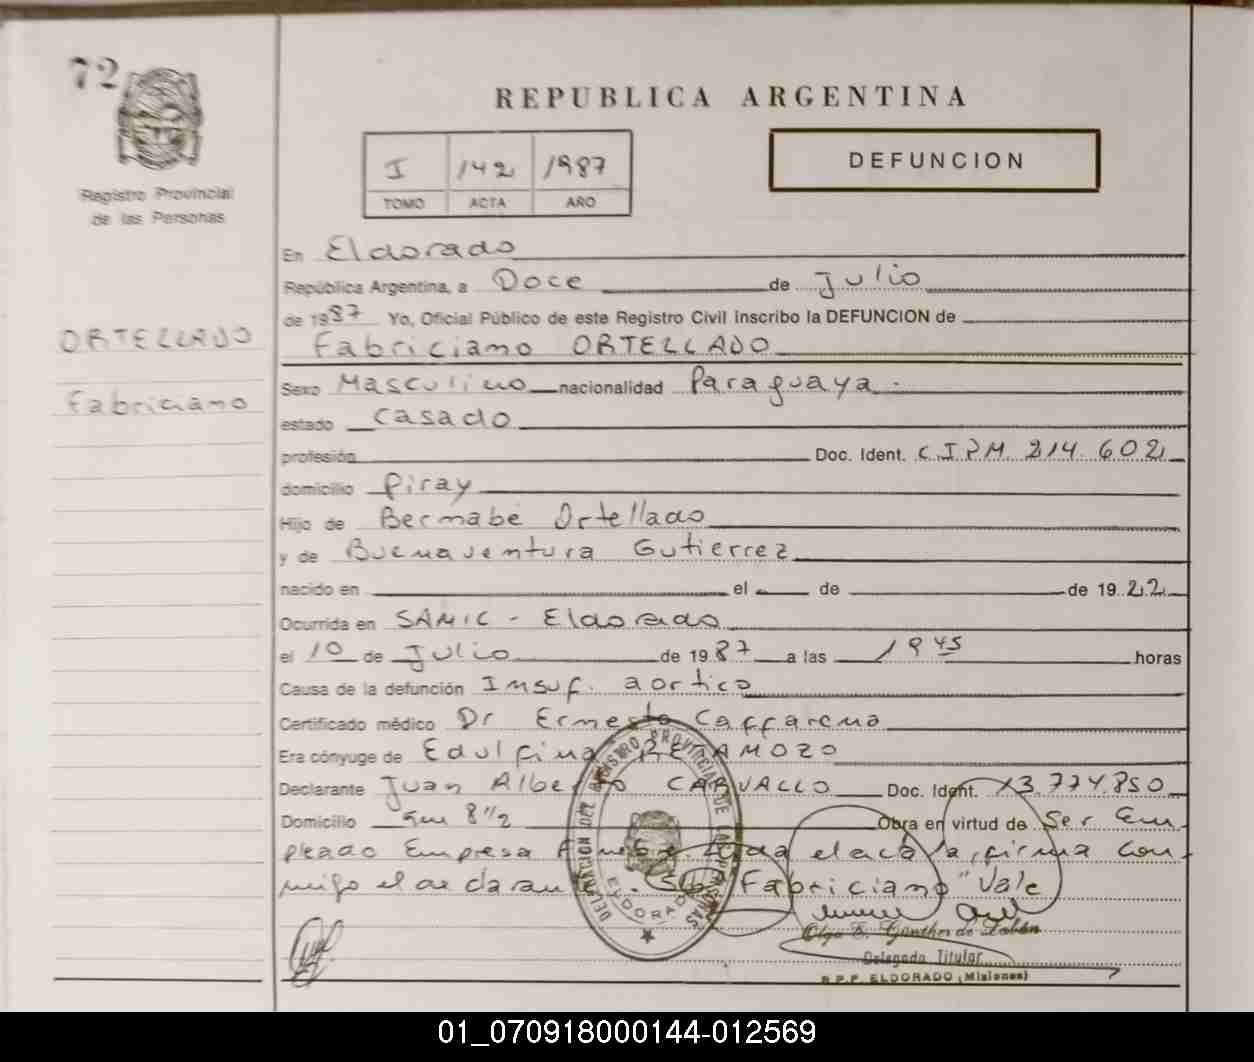 72
REPUBLICA ARGENTINA
I 142 1987
TOMO ACTA AÑO
DEFUNCION
Registro Provincial
de las Personas
En Eldorado
República Argentina, a Doce de Julio
de 1987 Yo, Oficial Público de este Registro Civil inscribo la DEFUNCION de
ORTELLADO
Fabriciano ORTELLADO
Fabriciano
Sexo Masculino nacionalidad Paraguaya.
estado Casado
profesión Doc. Ident. C.I.P.M. 214.602
domicilio Piray
Hijo de Bernabé Ortellado
y de Buenaventura Gutierrez
nacido en el de de 1922
Ocurrida en SAMIC - Eldorado
el 10 de Julio de 1987 a las 19 45 horas
Causa de la defunción Insuf. aortico
Certificado médico Dr Ernesto Caffarena
Era cónyuge de Edulfina RETAMOZO
Declarante Juan Alberto CARVALLO Doc. Ident. 13.774.850
Domicilio Km 8 1/2 Obra en virtud de Ser Em
pleado Empresa Leida el acta, firma con
migo el declarante. "Fabriciano" Vale
DELEGACION DEL REGISTRO PROVINCIAL DE LAS PERSONAS
ELDORADO
Olga E. Günther de
Delegado Titular
R.P.P. ELDORADO (Misiones)
01_070918000144-012569